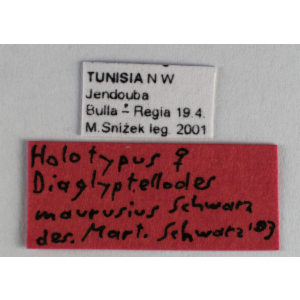 TUNISIA N W
Jendouba
Bulla - Regia 19.4.
M.Snižek leg. 2001
Holotypus ♀
Diaglyptellodes
maurusius Schwarz
des. Mart. Schwarz '03